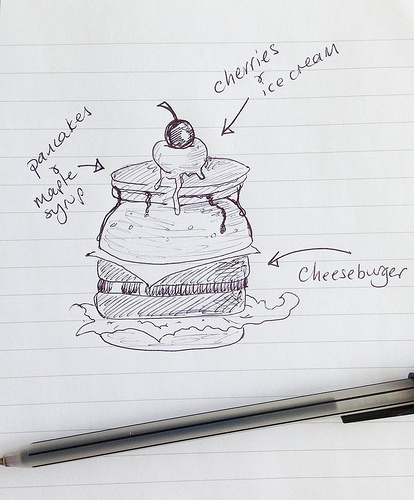 cherries
&
ice cream
pancakes
&
maple
syrup
cheeseburger